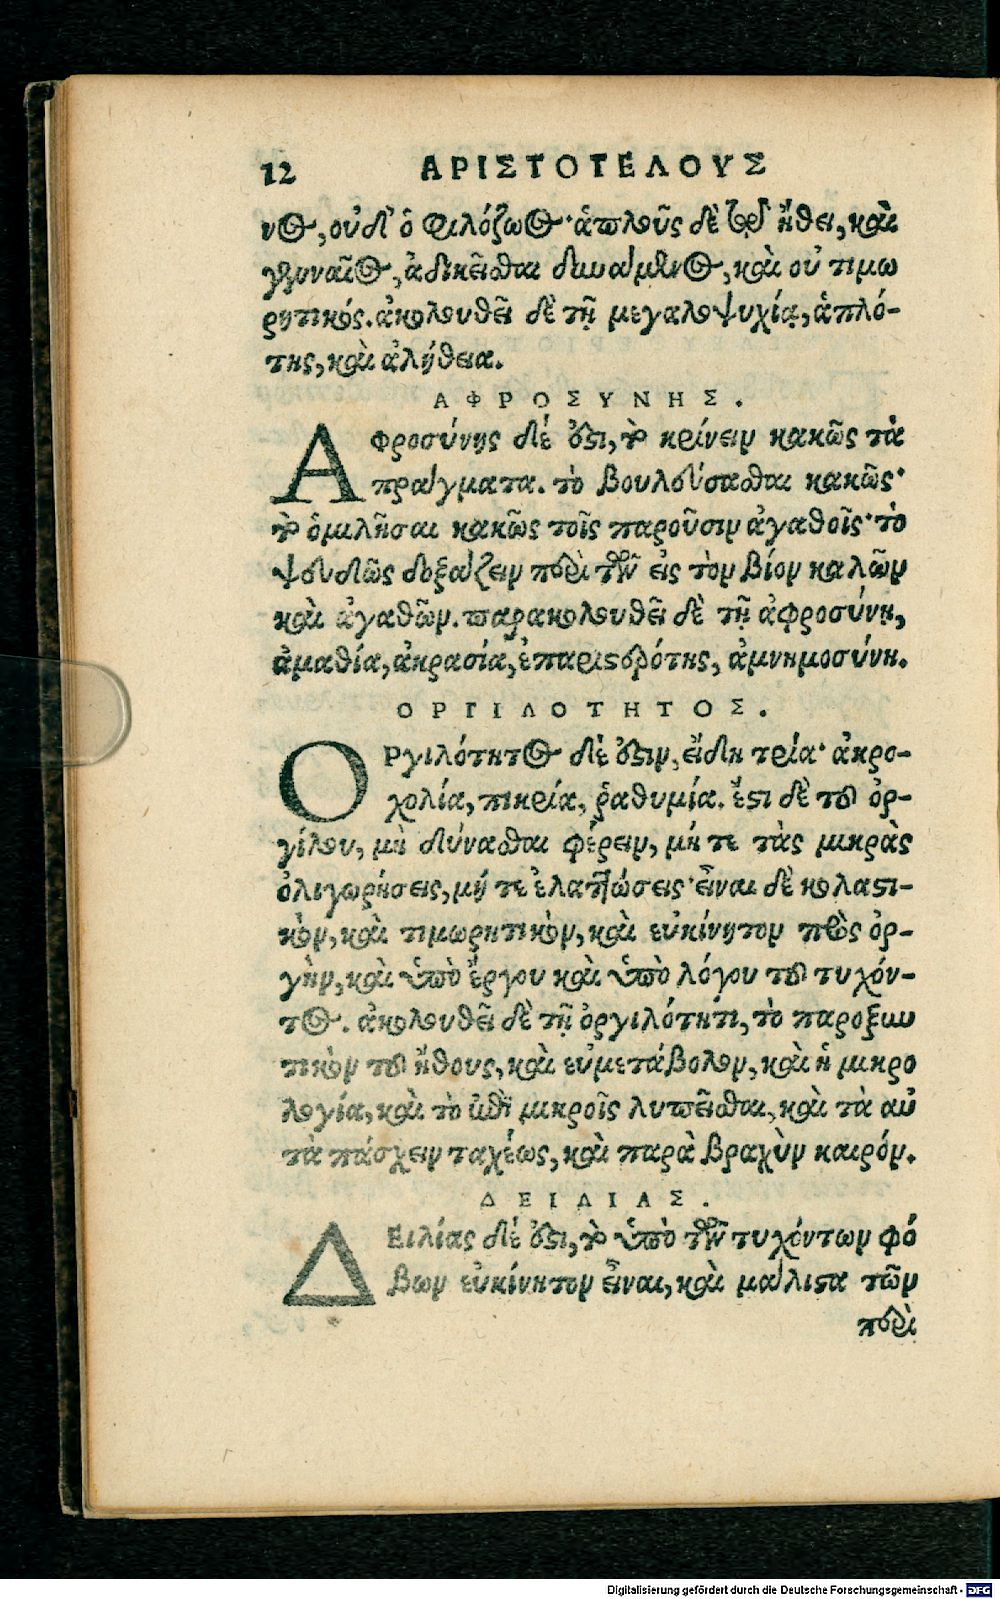 12 ΑΡΙΣΤΟΤΕΛΟΥΣ
νος, οὐδ' ὁ φιλόζωος· ἁπλοῦς δὲ τῷ ἤθει, καὶ
γενναῖος, ἀδικεῖσθαι δυνάμενος, καὶ οὐ τιμω
ρητικός. ἀκολουθεῖ δὲ τῇ μεγαλοψυχίᾳ, ἁπλό-
της, καὶ ἀλήθεια.
ΑΦΡΟΣΥΝΗΣ.
Αφροσύνης δέ ἐστι, τὸ κρίνειν κακῶς τὰ
πράγματα. τὸ βουλεύσασθαι κακῶς·
τὸ ὁμιλῆσαι κακῶς τοῖς παροῦσιν ἀγαθοῖς· τὸ
ψευδῶς δοξάζειν περὶ τῶν εἰς τὸν βίον καλῶν
καὶ ἀγαθῶν. παρακολουθεῖ δὲ τῇ ἀφροσύνῃ,
ἀμαθία, ἀκρασία, ἐπαριστερότης, ἀμνημοσύνη.
ΟΡΓΙΛΟΤΗΤΟΣ.
Οργιλότητος δέ ἐστιν, εἴδη τρία· ἀκρο-
χολία, πικρία, ῥαθυμία. ἔστι δὲ τοῦ ὀρ-
γίλου, μὴ δύνασθαι φέρειν, μήτε τὰς μικρὰς
ὀλιγωρήσεις, μήτε ἐλαττώσεις· εἶναι δὲ κολαστι-
κὸν, καὶ τιμωρητικὸν, καὶ εὐκίνητον πρὸς ὀρ-
γὴν, καὶ ὑπὸ ἔργου καὶ ὑπὸ λόγου τοῦ τυχόν-
τος. ἀκολουθεῖ δὲ τῇ ὀργιλότητι, τὸ παροξυν
τικὸν τοῦ ἤθους, καὶ εὐμετάβολον, καὶ ἡ μικρο
λογία, καὶ τὸ ἐπὶ μικροῖς λυπεῖσθαι, καὶ τὰ αὐ
τὰ πάσχειν ταχέως, καὶ παρὰ βραχὺν καιρόν.
ΔΕΙΛΙΑΣ.
Δειλίας δέ ἐστι, τὸ ὑπὸ τῶν τυχόντων φό
βων εὐκίνητον εἶναι, καὶ μάλιστα τῶν
περὶ
Digitalisierung gefördert durch die Deutsche Forschungsgemeinschaft - DFG